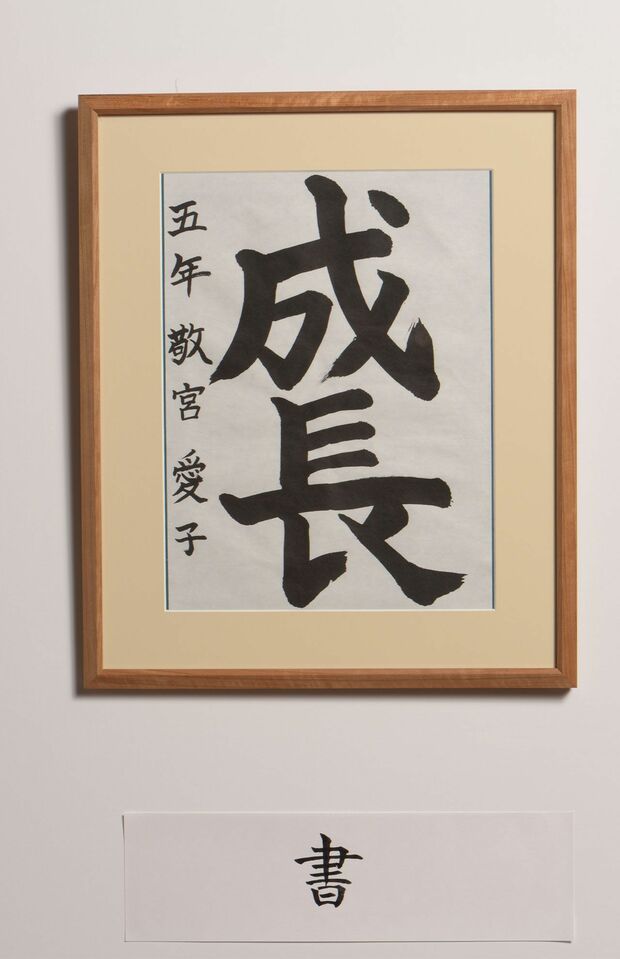 成長
五年 敬宮 愛子
書